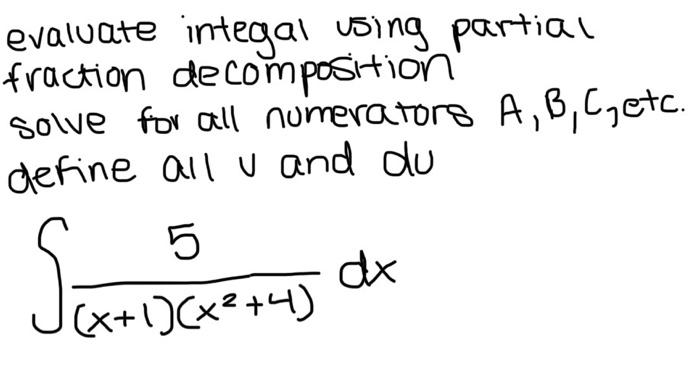 evaluate integal using partial
fraction decomposition
solve for all numerators A, B, C, etc.
define all u and du
∫ 5 / (x+1)(x²+4) dx